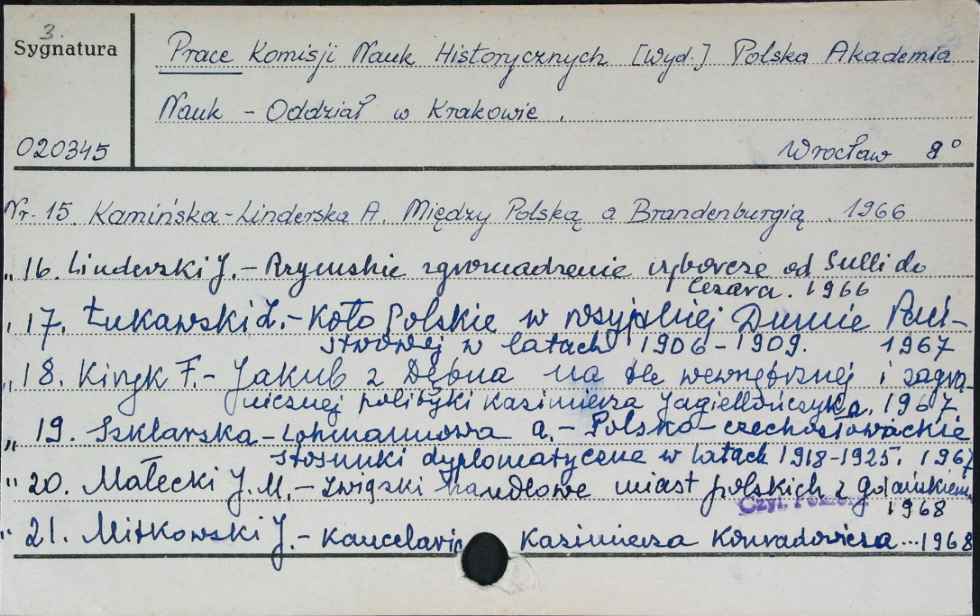 3.
Sygnatura
Prace Komisji Nauk Historycznych [Wyd.] Polska Akademia
Nauk - Oddział w Krakowie.
020345
Wrocław 8°
Nr. 15. Kamińska-Linderska A. Między Polską a Brandenburgią. 1966
„ 16. Linderski J. - Rzymskie zgromadzenie wyborcze od Sulli do
Cezara. 1966
„ 17. Łukawski Z. - Koło Polskie w rosyjskiej Dumie Pań-
stwowej w latach 1906-1909. 1967
„ 18. Kiryk F. - Jakub z Dębna na tle wewnętrznej i zagra
nicznej polityki Kazimierza Jagiellończyka. 1967
„ 19. Szklarska-Lohmannowa A. - Polsko-czechosłowackie
stosunki dyplomatyczne w latach 1918-1925. 1967
" 20. Małecki J. M. - Związki handlowe miast polskich z Gdańskiem
Czyt.
1968
" 21. Mitkowski J. - Kancelaria Kazimierza Konradowicza...1968